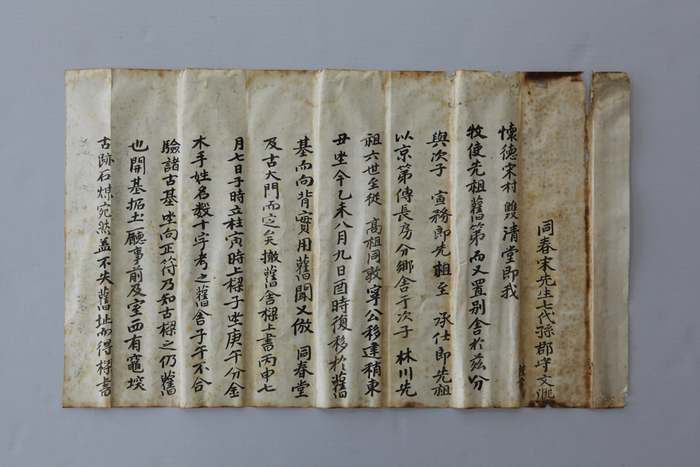 同春宋先生七代孫郡守文
懷德宋村雙清堂即我
牧使先祖舊第而又置別舍於茲分
與次子寅務即先祖至承仕即先祖
以京第傳長房分鄉舍于次子林川先
祖六世至從高祖同敦寧公移建稍東
丑坐今乙未八月九日酉時復移於舊
基而向背實用舊聞又倣同春堂
及古大門而定矣撤舊舍樑上書丙申七
月七日子時立柱寅時上樑子坐庚午分金
木手姓名數十字考之舊舍子午不合
驗諸古基坐向正符乃知古樑之仍舊
也開基拓土廳事前及室西有竈埃
古跡石煤宛然益不失舊址而得樑書